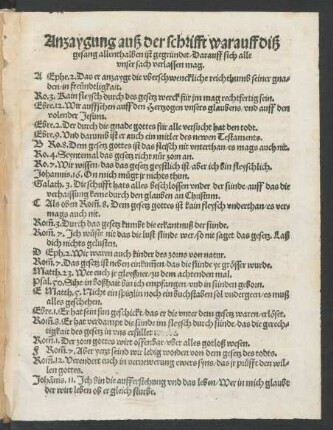 Anzaygung auß der schrifft warauff diß
gesang allenthalben ist gegründet. Darauff sich alle
vnser sach verlassen mag.
A Ephe. 2. Das er anzaygt die vberschwenckliche reichthumb seiner gna-
den in freündtligkait.
Ro. 3. Kain fleysch durch des gesetz werck für jm mag rechtfertig sein.
Ebre. 12. Wir auffsehen auff den Hertzogen vnsers glaubens, vnd auff den
volender Jesum.
Ebre. 2. Der durch die gnade gottes für alle versucht hat den todt.
Ebre. 9. Vnd darumb ist er auch ein mitler des newen Testaments.
B Ro. 8. Dem gesetz gottes ist das fleysch nit vnterthan es mags auch nit.
Ro. 4. Seyntemal das gesetz richt nür zorn an.
Ro. 7. Wir wissen das das gesetz geystlich ist aber ich bin fleyschlich.
Johannis. 16. On mich mügt jr nichts thun.
Galath. 3. Die schrifft hats alles beschlossen vnder der sünde, auff das die
verhaissung keme durch den glauben an Christum.
C Als oben Rom. 8. Dem gesetz gottes ist kain fleysch vnderthan, es ver
mags auch nit.
Rom. 3. Durch das gesetz kumbt die erkantnuß der sünde.
Rom. 7. Ich wüste nit das die lust sünde wer, so nit saget das gesetz. Laß
dich nichts gelusten.
D Eph. 2. Wir waren auch kinder des zorns von natur.
Rom. 7. Das gesetz ist neben einkumen, das die sünde ye grösser wurde.
Matth. 23. Wee euch jr gleyßner, zu dem achtenden mal.
Psal. 50. Sihe in boßhait bin ich empfangen, vnd in sünden geborn.
E Matth. 5. Nicht ein spitzlin noch ein buchstaben sol vndergeen, es muß
alles geschehen.
Ebre. 1. Er hat sein sun geschickt, das er die vnter dem gesetz waren, erlöset.
Rom. 8. Er hat verdampt die sünde im fleysch durch sünde, das die gerech-
tigkait des gesetz in vns erfüllet
Rom. 1. Der zorn gottes wirt offenbar vber alles gotloß wesen.
F Rom. 7. Aber yetzt seind wir ledig worden von dem gesetz des todts.
Rom. 12. Verendert euch in vernewerung ewers syns, das jr prüfft den wil-
len gottes.
Johānis. 11. Ich bin die aufferstehung vnd das leben, Wer in mich glaubt
der wirt leben ob er gleich stürbe.